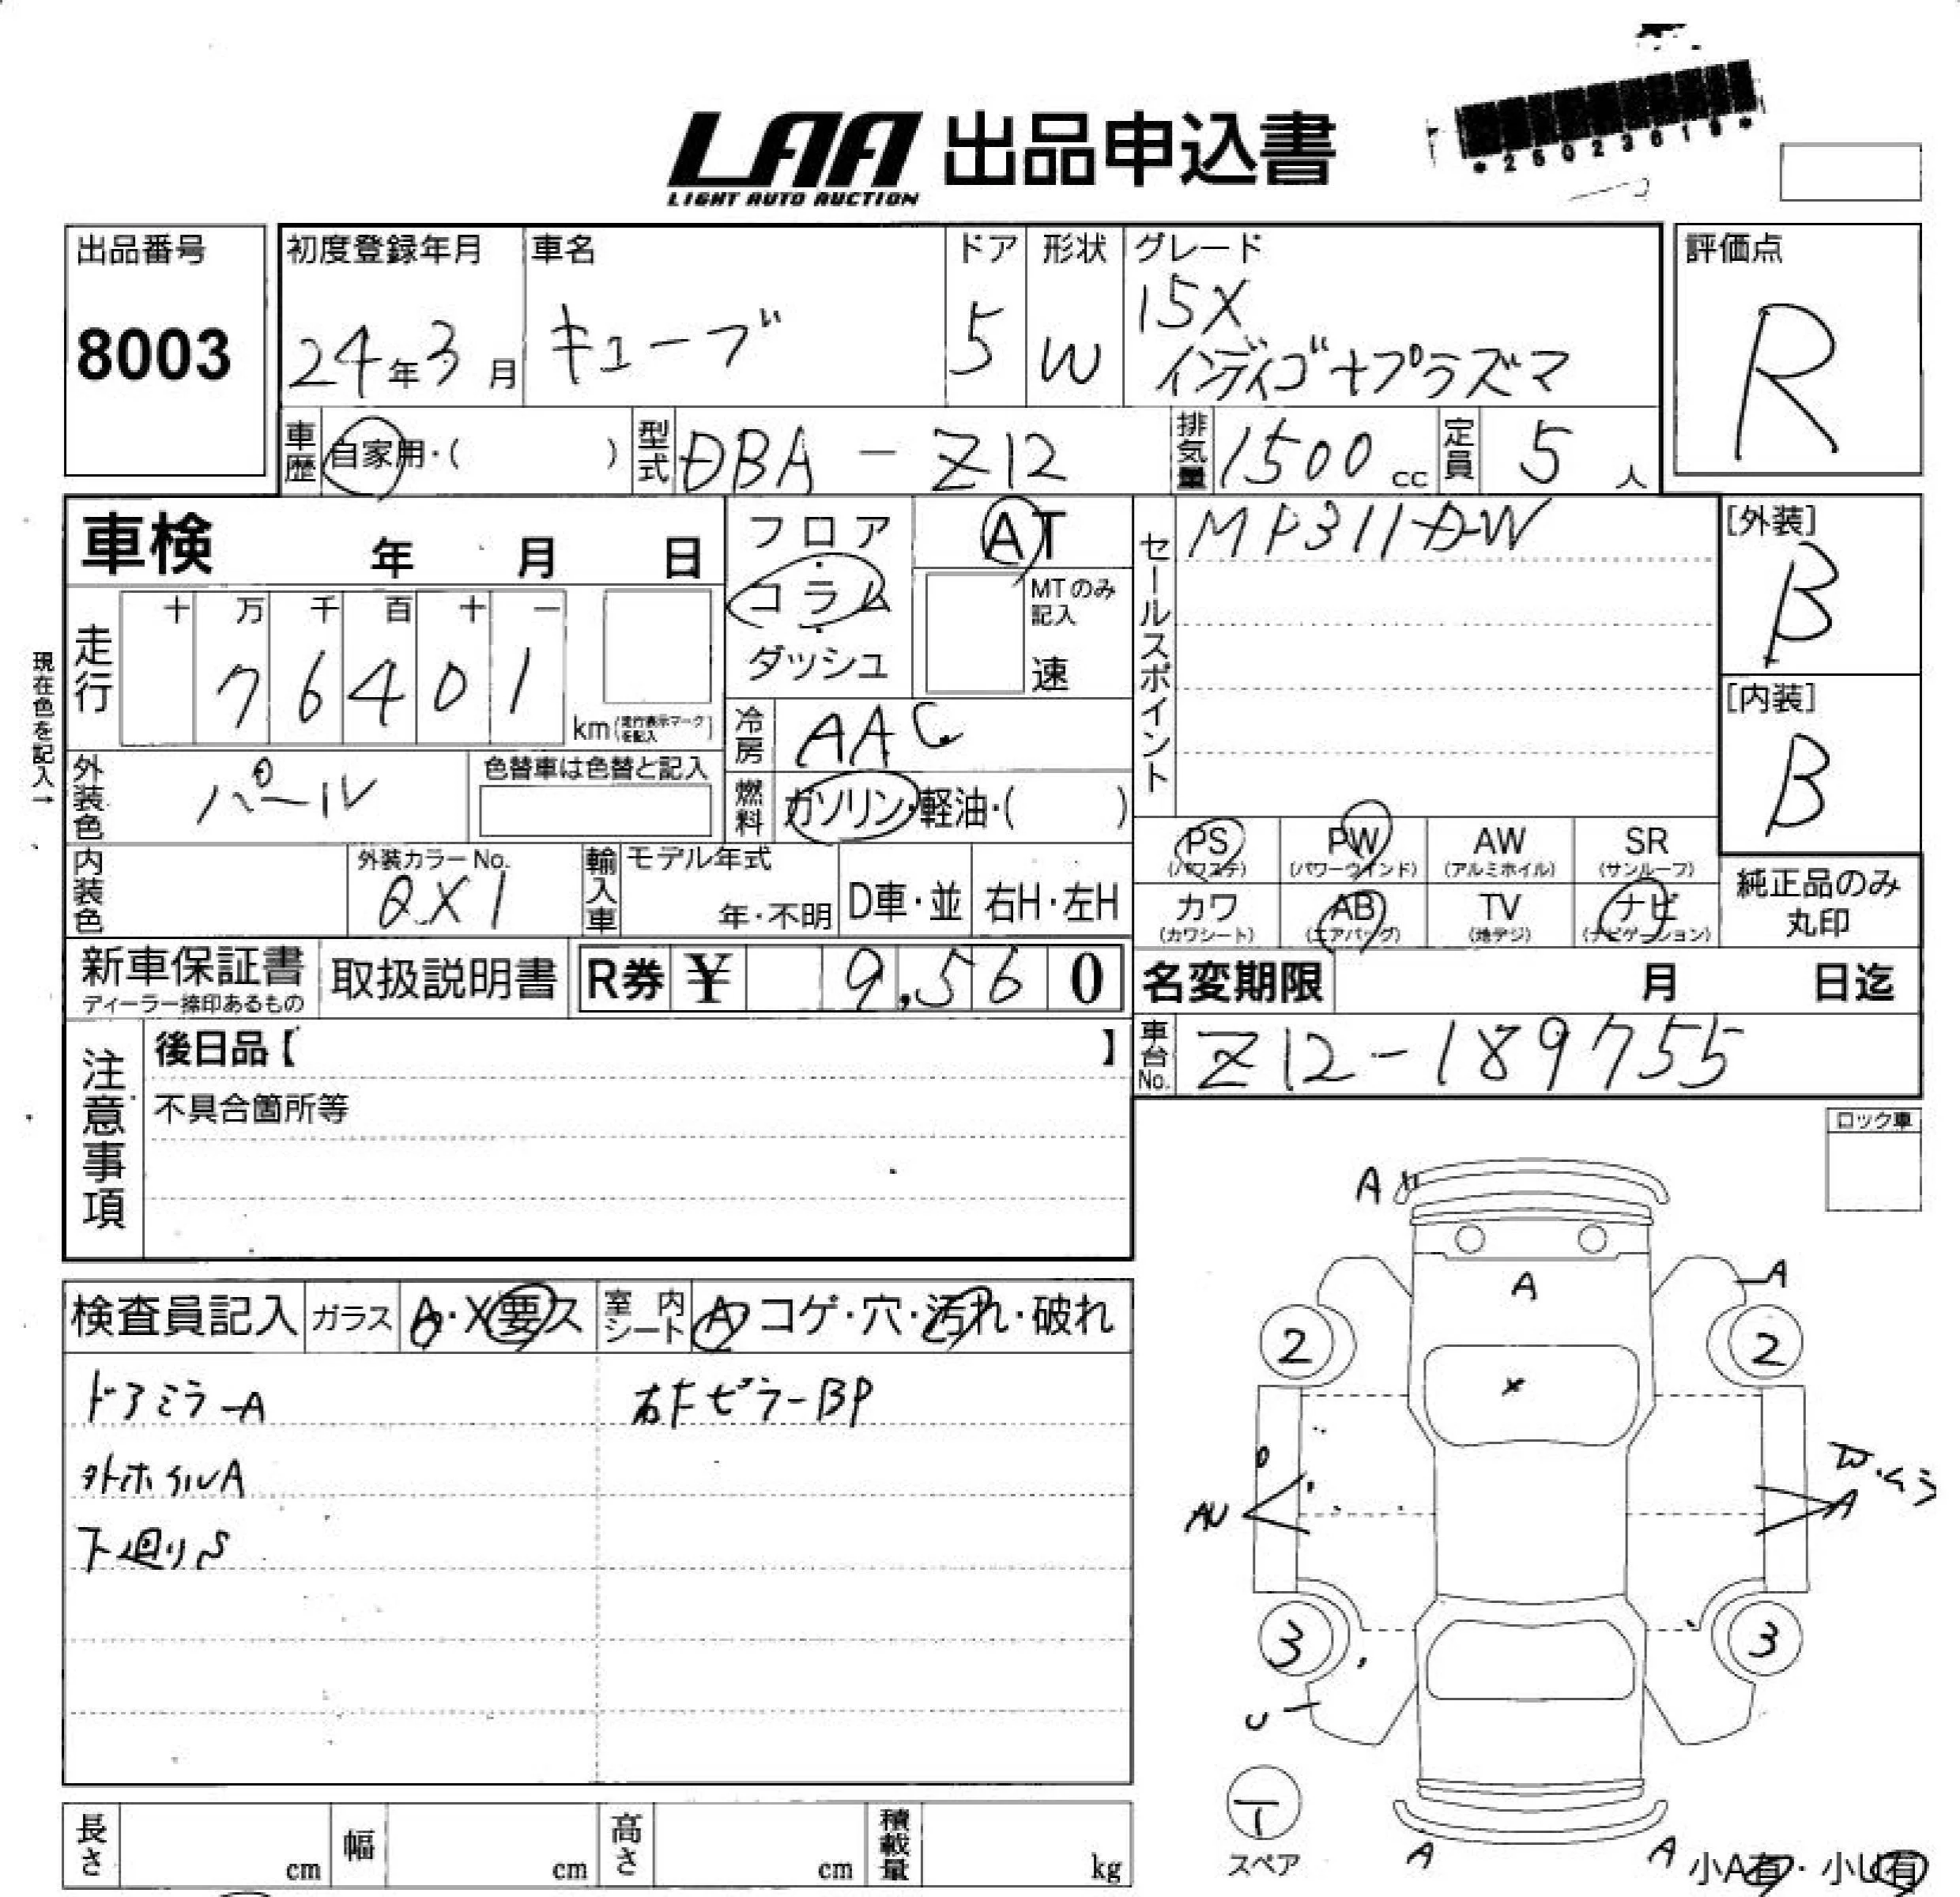 *25023619*
LAA 出品申込書
LIGHT AUTO AUCTION
出品番号
8003
初度登録年月
24年3月
車名
キューブ
ドア
5
形状
W
グレード
15X
インディゴ+プラズマ
評価点
R
車歴
自家用・( )
型式
DBA-Z12
排気量
1500cc
定員
5人
車検 年 月 日
フロア
コラム
ダッシュ
AT
MTのみ記入
速
セールスポイント
MP311D-W
[外装]
B
[内装]
B
現在色を記入→
走行
十 万 千 百 十 一
7 6 4 0 1
km(走行表示マークを記入)
冷房
AAC
外装色
パール
色替車は色替と記入
燃料
ガソリン・軽油・( )
PS
(パワステ)
PW
(パワーウインド)
AW
(アルミホイル)
SR
(サンルーフ)
カワ
(カワシート)
AB
(エアバッグ)
TV
(地デジ)
ナビ
(ナビゲーション)
純正品のみ
丸印
内装色
外装カラーNo.
QX1
輸入車
モデル年式
年・不明
D車・並
右H・左H
新車保証書
ディーラー捺印あるもの
取扱説明書
R券 ¥ 9,560
名変期限 月 日迄
車台No.
Z12-189755
注意事項
後日品【 】
不具合箇所等
ロック車
検査員記入
ガラス
A・X要ス
室内シート
A・コゲ・穴・汚れ・破れ
ドアミラーA
右Fピラー BP
外ホイルA
下廻りS
A
A
A
2
2
X
AU
A
W・ムラ
3
3
U
T
スペア
A
A
小A有・小U有
長さ cm
幅 cm
高さ cm
積載量 kg